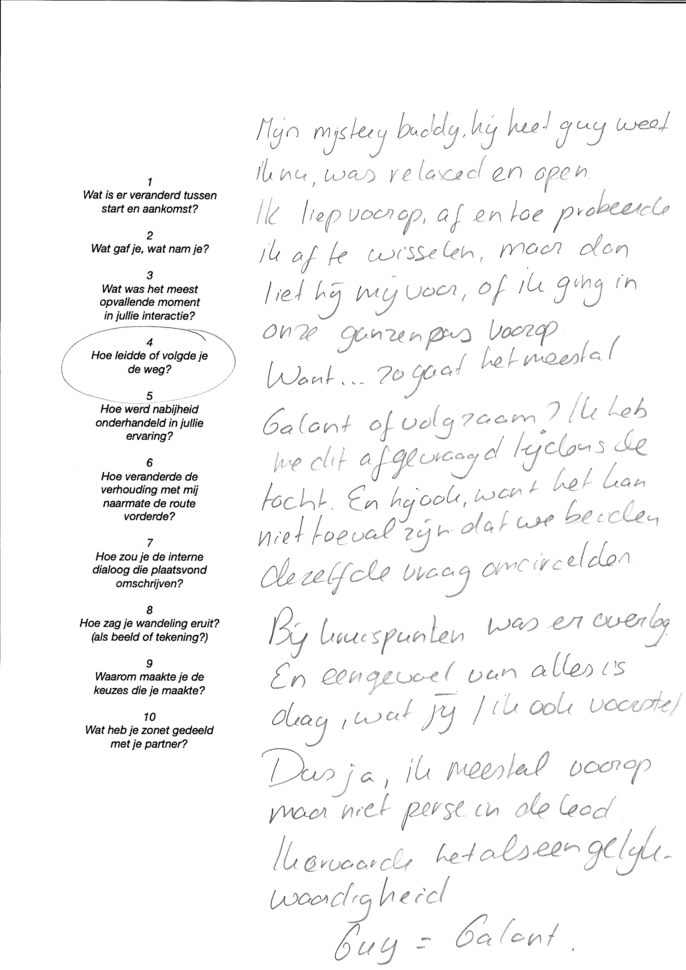 1
Wat is er veranderd tussen
start en aankomst?
2
Wat gaf je, wat nam je?
3
Wat was het meest
opvallende moment
in jullie interactie?
4
Hoe leidde of volgde je
de weg?
5
Hoe werd nabijheid
onderhandeld in jullie
ervaring?
6
Hoe veranderde de
verhouding met mij
naarmate de route
vorderde?
7
Hoe zou je de interne
dialoog die plaatsvond
omschrijven?
8
Hoe zag je wandeling eruit?
(als beeld of tekening?)
9
Waarom maakte je de
keuzes die je maakte?
10
Wat heb je zonet gedeeld
met je partner?
Mijn mystery buddy, hij heet guy weet
ik nu, was relaxed en open.
Ik liep voorop, af en toe probeerde
ik af te wisselen, maar dan
liet hij mij voor, of ik ging in
onze ganzenpas voorop
Want... zo gaat het meestal
Galant of volgzaam? Ik heb
me dit afgevraagd tijdens de
tocht. En hij ook, want het kan
niet toeval zijn dat we beiden
dezelfde vraag omcirkelden.
Bij kruispunten was er overleg
En een gevoel van alles is
okay, wat jij / ik ook voorstel
Dus ja, ik meestal voorop
maar niet perse in de lead
Ik ervaarde het als een gelijk-
waardigheid
Guy = Galant.